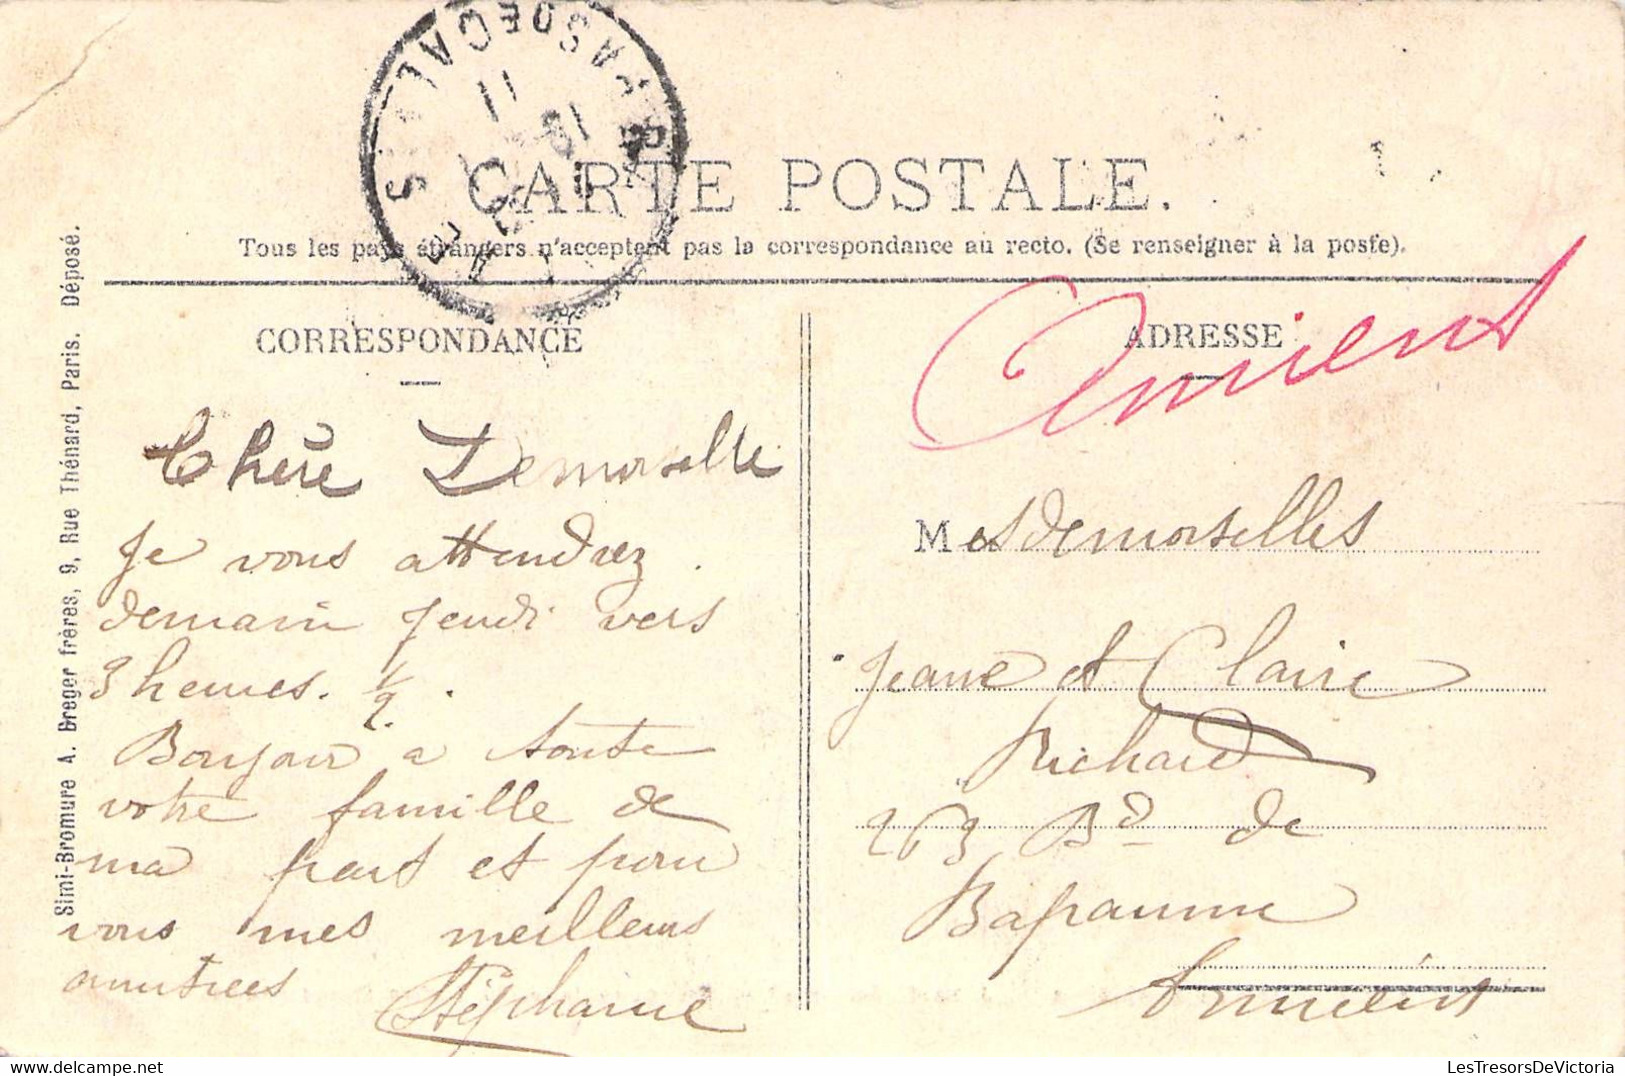 CARTE POSTALE.
Tous les pays étrangers n'acceptent pas la correspondance au recto. (Se renseigner à la poste).
CORRESPONDANCE
Chère Demoiselle
Je vous attendrez
demain jeudi vers
3 heures. 1/2.
Bonjour a toute
votre famille de
ma part et pour
vous mes meilleurs
amitiees
Stéphanie
ADRESSE
Amiens
Mesdemoiselles
Jeane et Claire
Richard
263 Bd de
Bapaume
Amiens
Simi-Bromure A. Breger frères, 9, Rue Thénard, Paris. Déposé.
LesTresorsDeVictoria